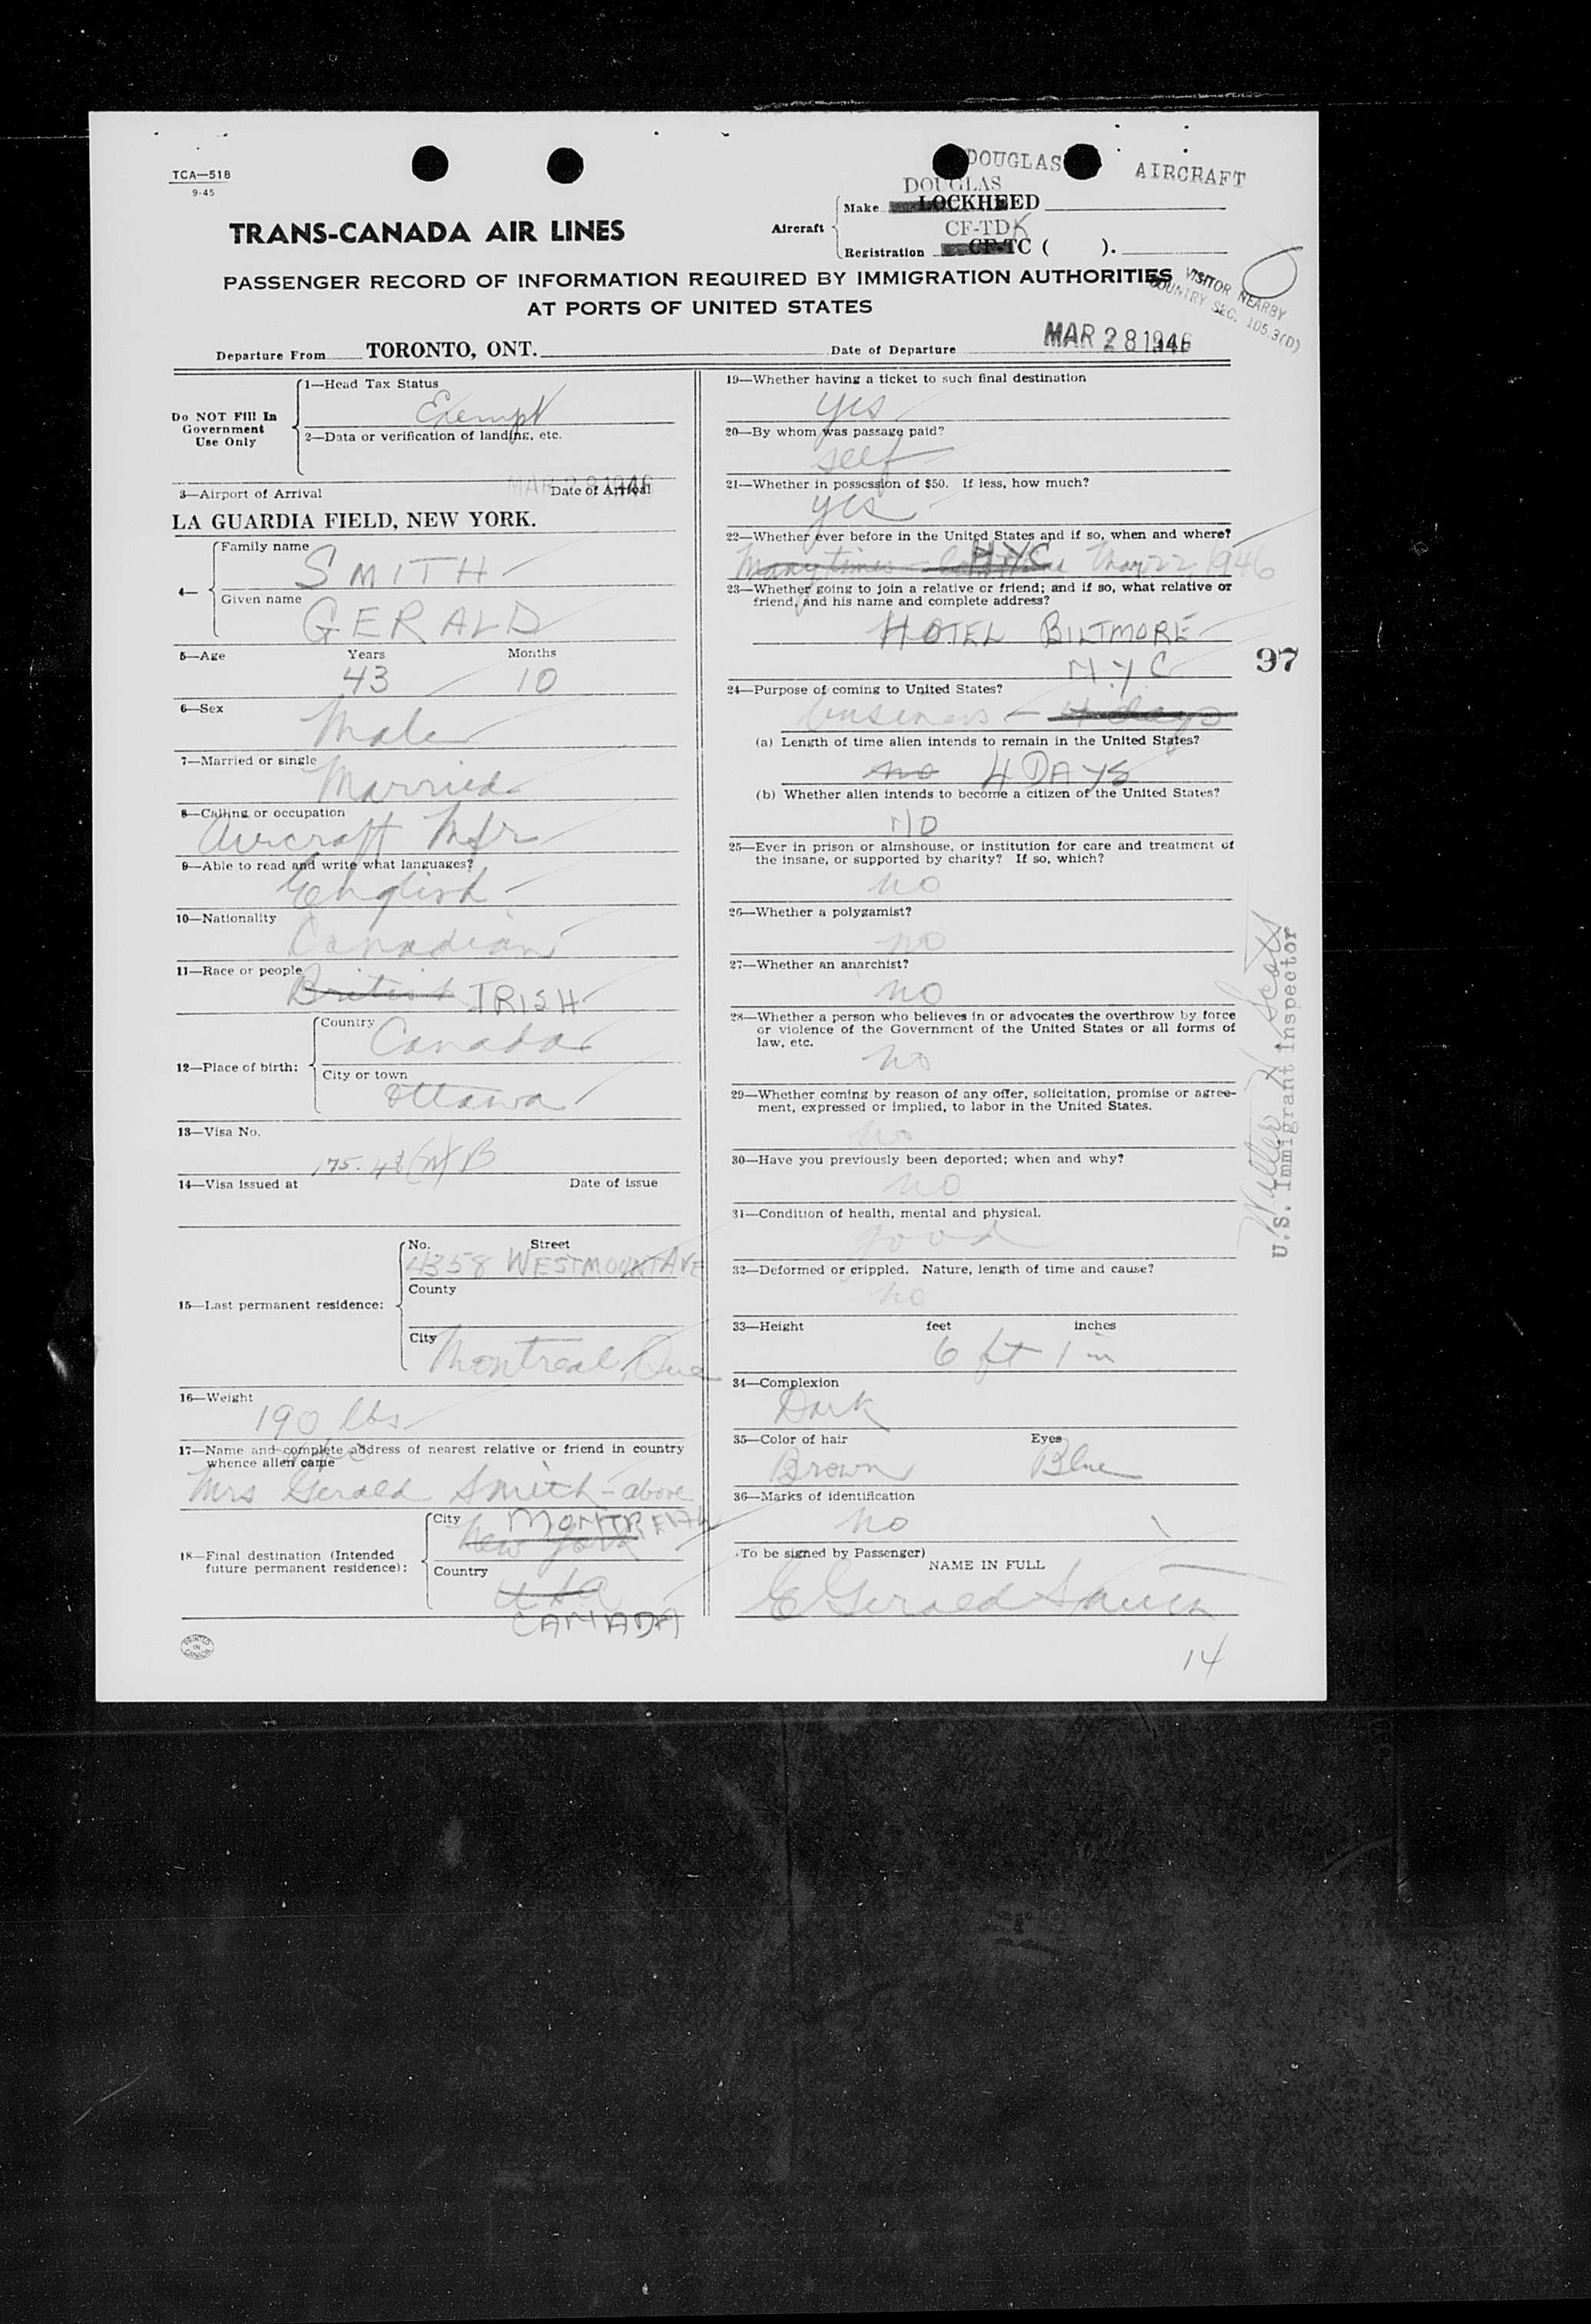 TCA—518
9-45
DOUGLAS AIRCRAFT
DOUGLAS
Make LOCKHEED
TRANS-CANADA AIR LINES
Aircraft
CF-TDK
Registration CF-TC ( ).
PASSENGER RECORD OF INFORMATION REQUIRED BY IMMIGRATION AUTHORITIES
AT PORTS OF UNITED STATES
VISITOR NEARBY
COUNTRY SEC. 105.3(D)
Departure From TORONTO, ONT. Date of Departure MAR 28 1946
Do NOT Fill In
Government
Use Only
1—Head Tax Status
Exempt
2—Data or verification of landing, etc.
3—Airport of Arrival Date of Arrival
MAR 28 1946
LA GUARDIA FIELD, NEW YORK.
4—
Family name
SMITH
Given name
GERALD
5—Age Years Months
43 10
6—Sex
Male
7—Married or single
Married
8—Calling or occupation
Aircraft Mfr
9—Able to read and write what languages?
English
10—Nationality
Canadian
11—Race or people
British IRISH
12—Place of birth:
Country
Canada
City or town
Ottawa
13—Visa No.
175.48 (n) B
14—Visa issued at Date of issue
15—Last permanent residence:
No. Street
4358 WESTMOUNT AVE
County
City
Montreal, Que
16—Weight
190 lbs
17—Name and complete address of nearest relative or friend in country
whence alien came
Mrs Gerald Smith - above
18—Final destination (Intended
future permanent residence):
City MONTREAL
New York
Country
USA
CANADA
PRINTED
IN
CANADA
19—Whether having a ticket to such final destination
yes
20—By whom was passage paid?
self
21—Whether in possession of $50. If less, how much?
yes
22—Whether ever before in the United States and if so, when and where?
Many times - NYC Mar 22, 1946
23—Whether going to join a relative or friend; and if so, what relative or
friend, and his name and complete address?
HOTEL BILTMORE
NYC
97
24—Purpose of coming to United States?
business - 4 days
(a) Length of time alien intends to remain in the United States?
no 4 DAYS
(b) Whether alien intends to become a citizen of the United States?
NO
25—Ever in prison or almshouse, or institution for care and treatment of
the insane, or supported by charity? If so, which?
no
26—Whether a polygamist?
no
27—Whether an anarchist?
no
28—Whether a person who believes in or advocates the overthrow by force
or violence of the Government of the United States or all forms of
law, etc.
no
29—Whether coming by reason of any offer, solicitation, promise or agree-
ment, expressed or implied, to labor in the United States.
no
30—Have you previously been deported; when and why?
no
31—Condition of health, mental and physical.
good
32—Deformed or crippled. Nature, length of time and cause?
no
33—Height feet inches
6 ft 1 in
34—Complexion
Dark
35—Color of hair Eyes
Brown Blue
36—Marks of identification
no
(To be signed by Passenger)
NAME IN FULL
E Gerald Smith
14
Walter Scott
U.S. Immigrant Inspector